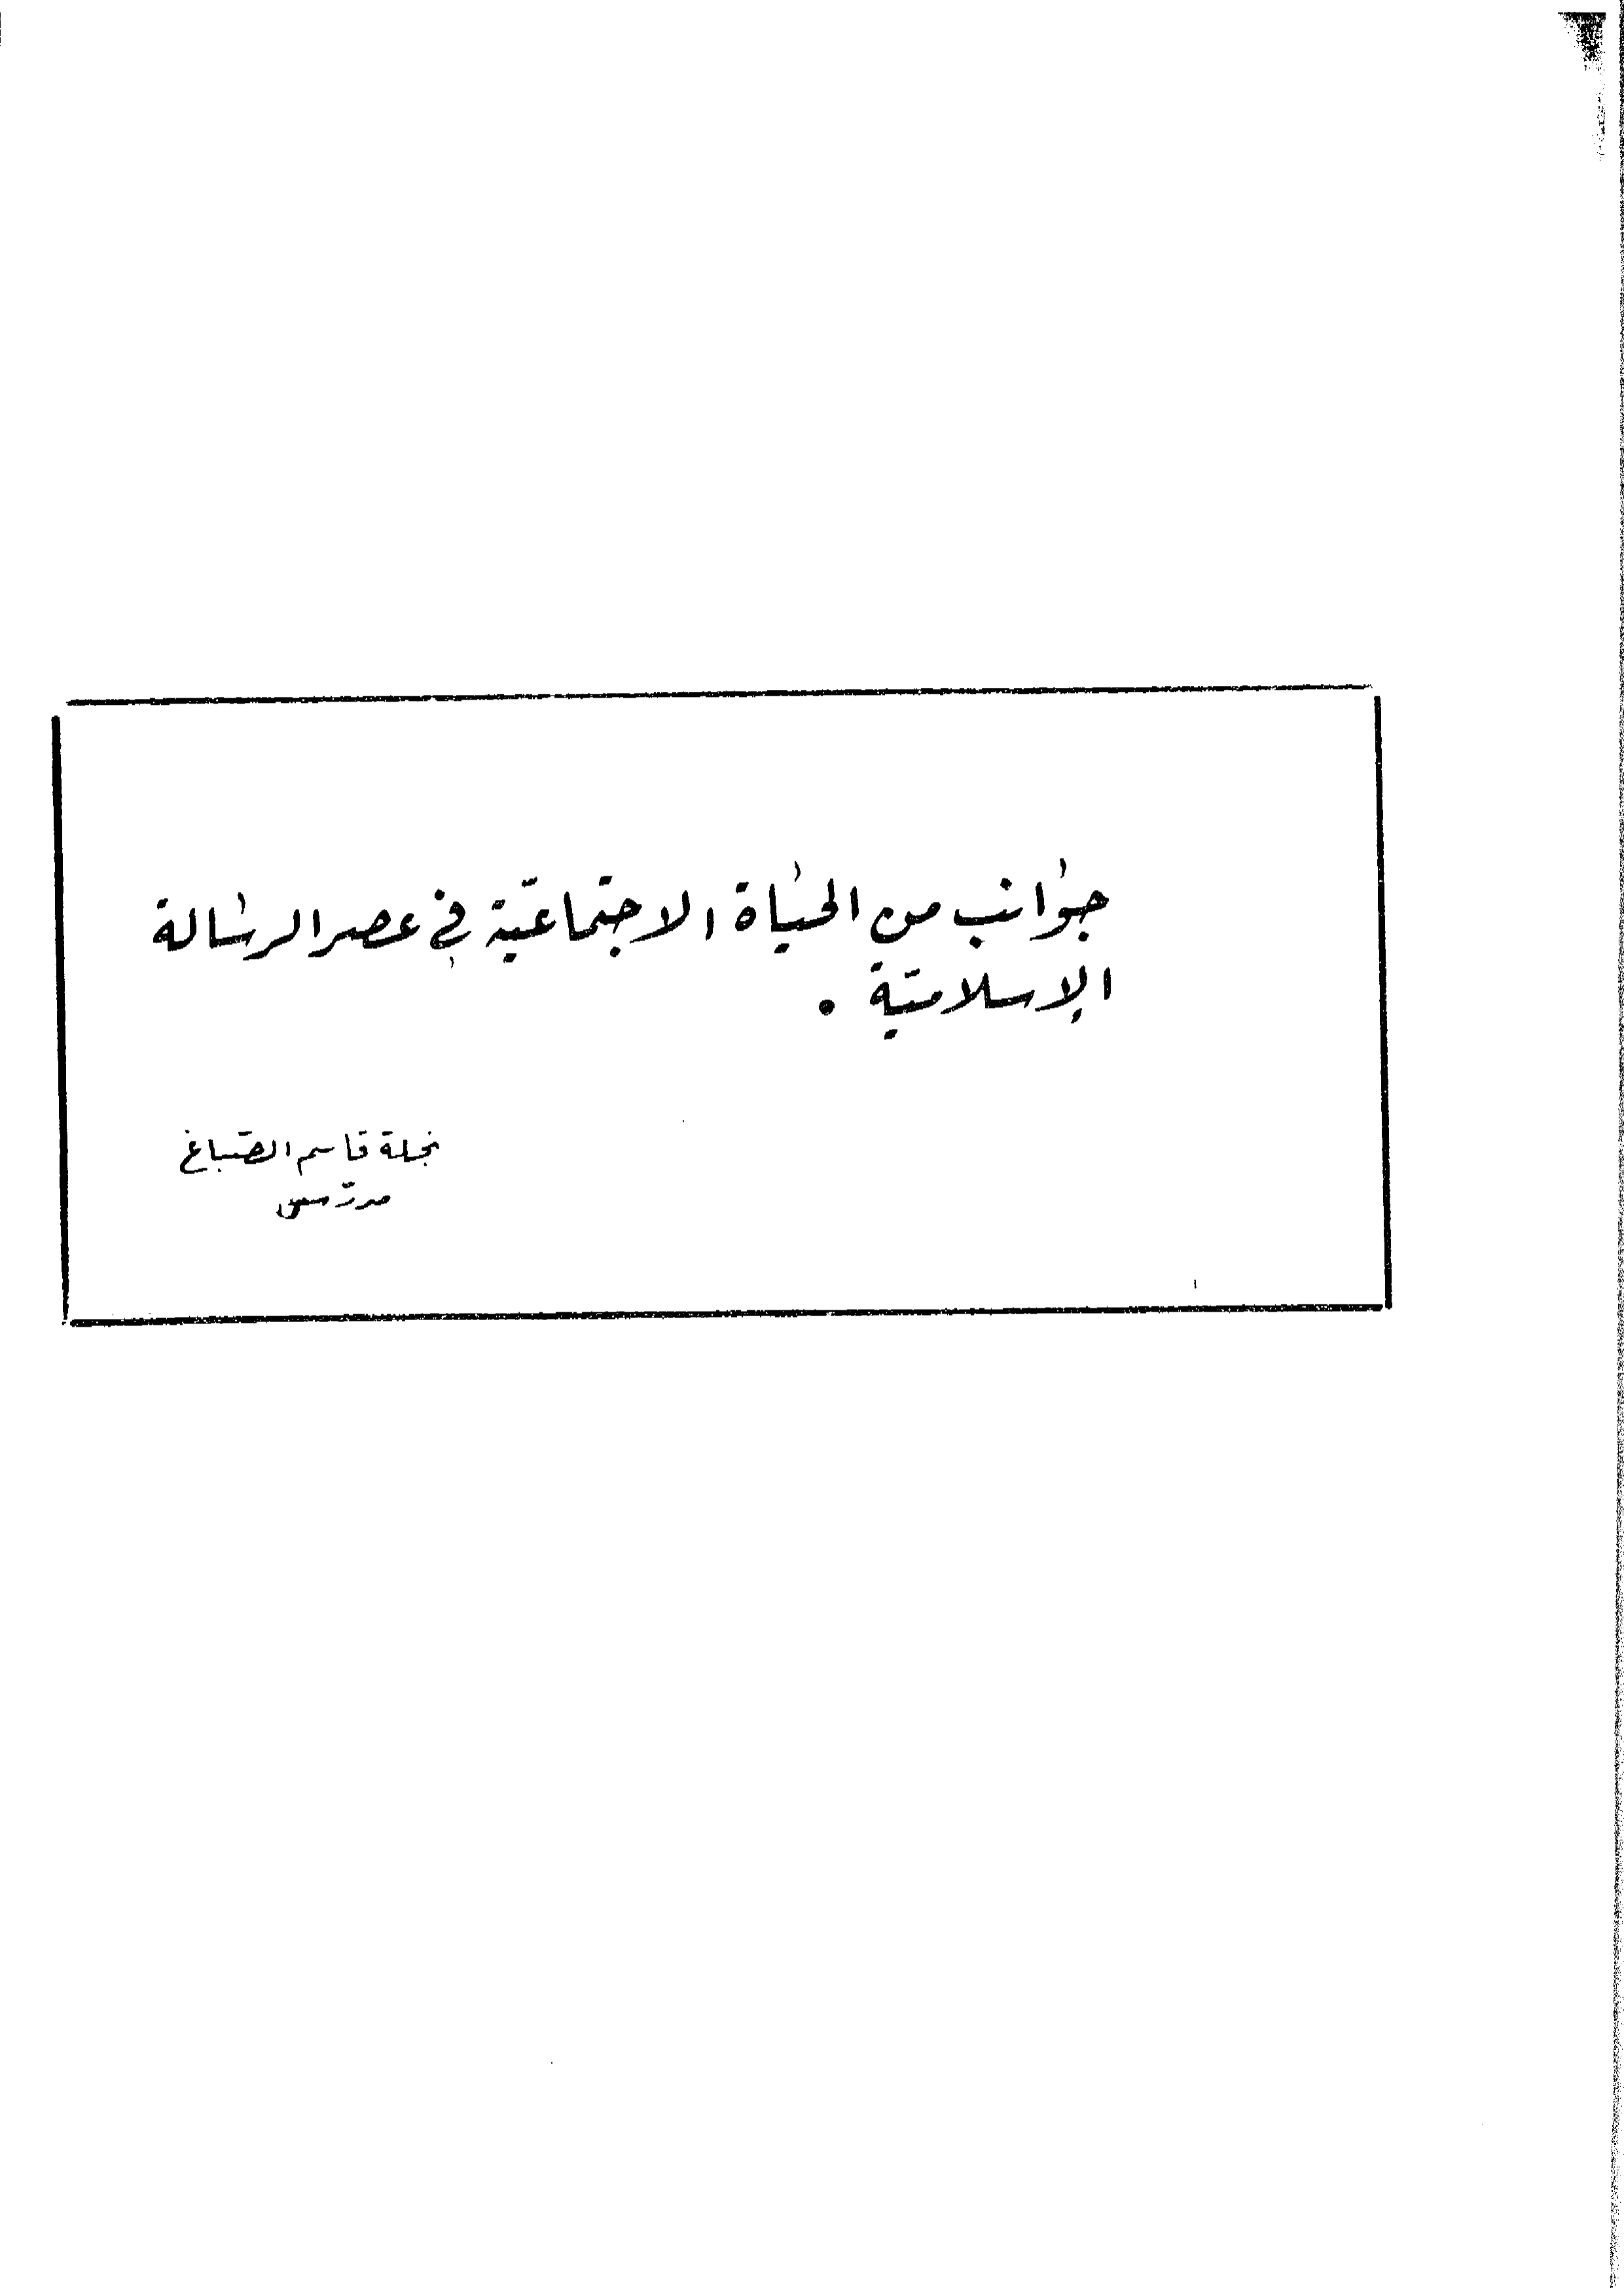 جوانب من الحياة الاجتماعيّة في عصر الرسالة
الإسلاميّة .
نجلة قاسم الصّباغ
مدرّس